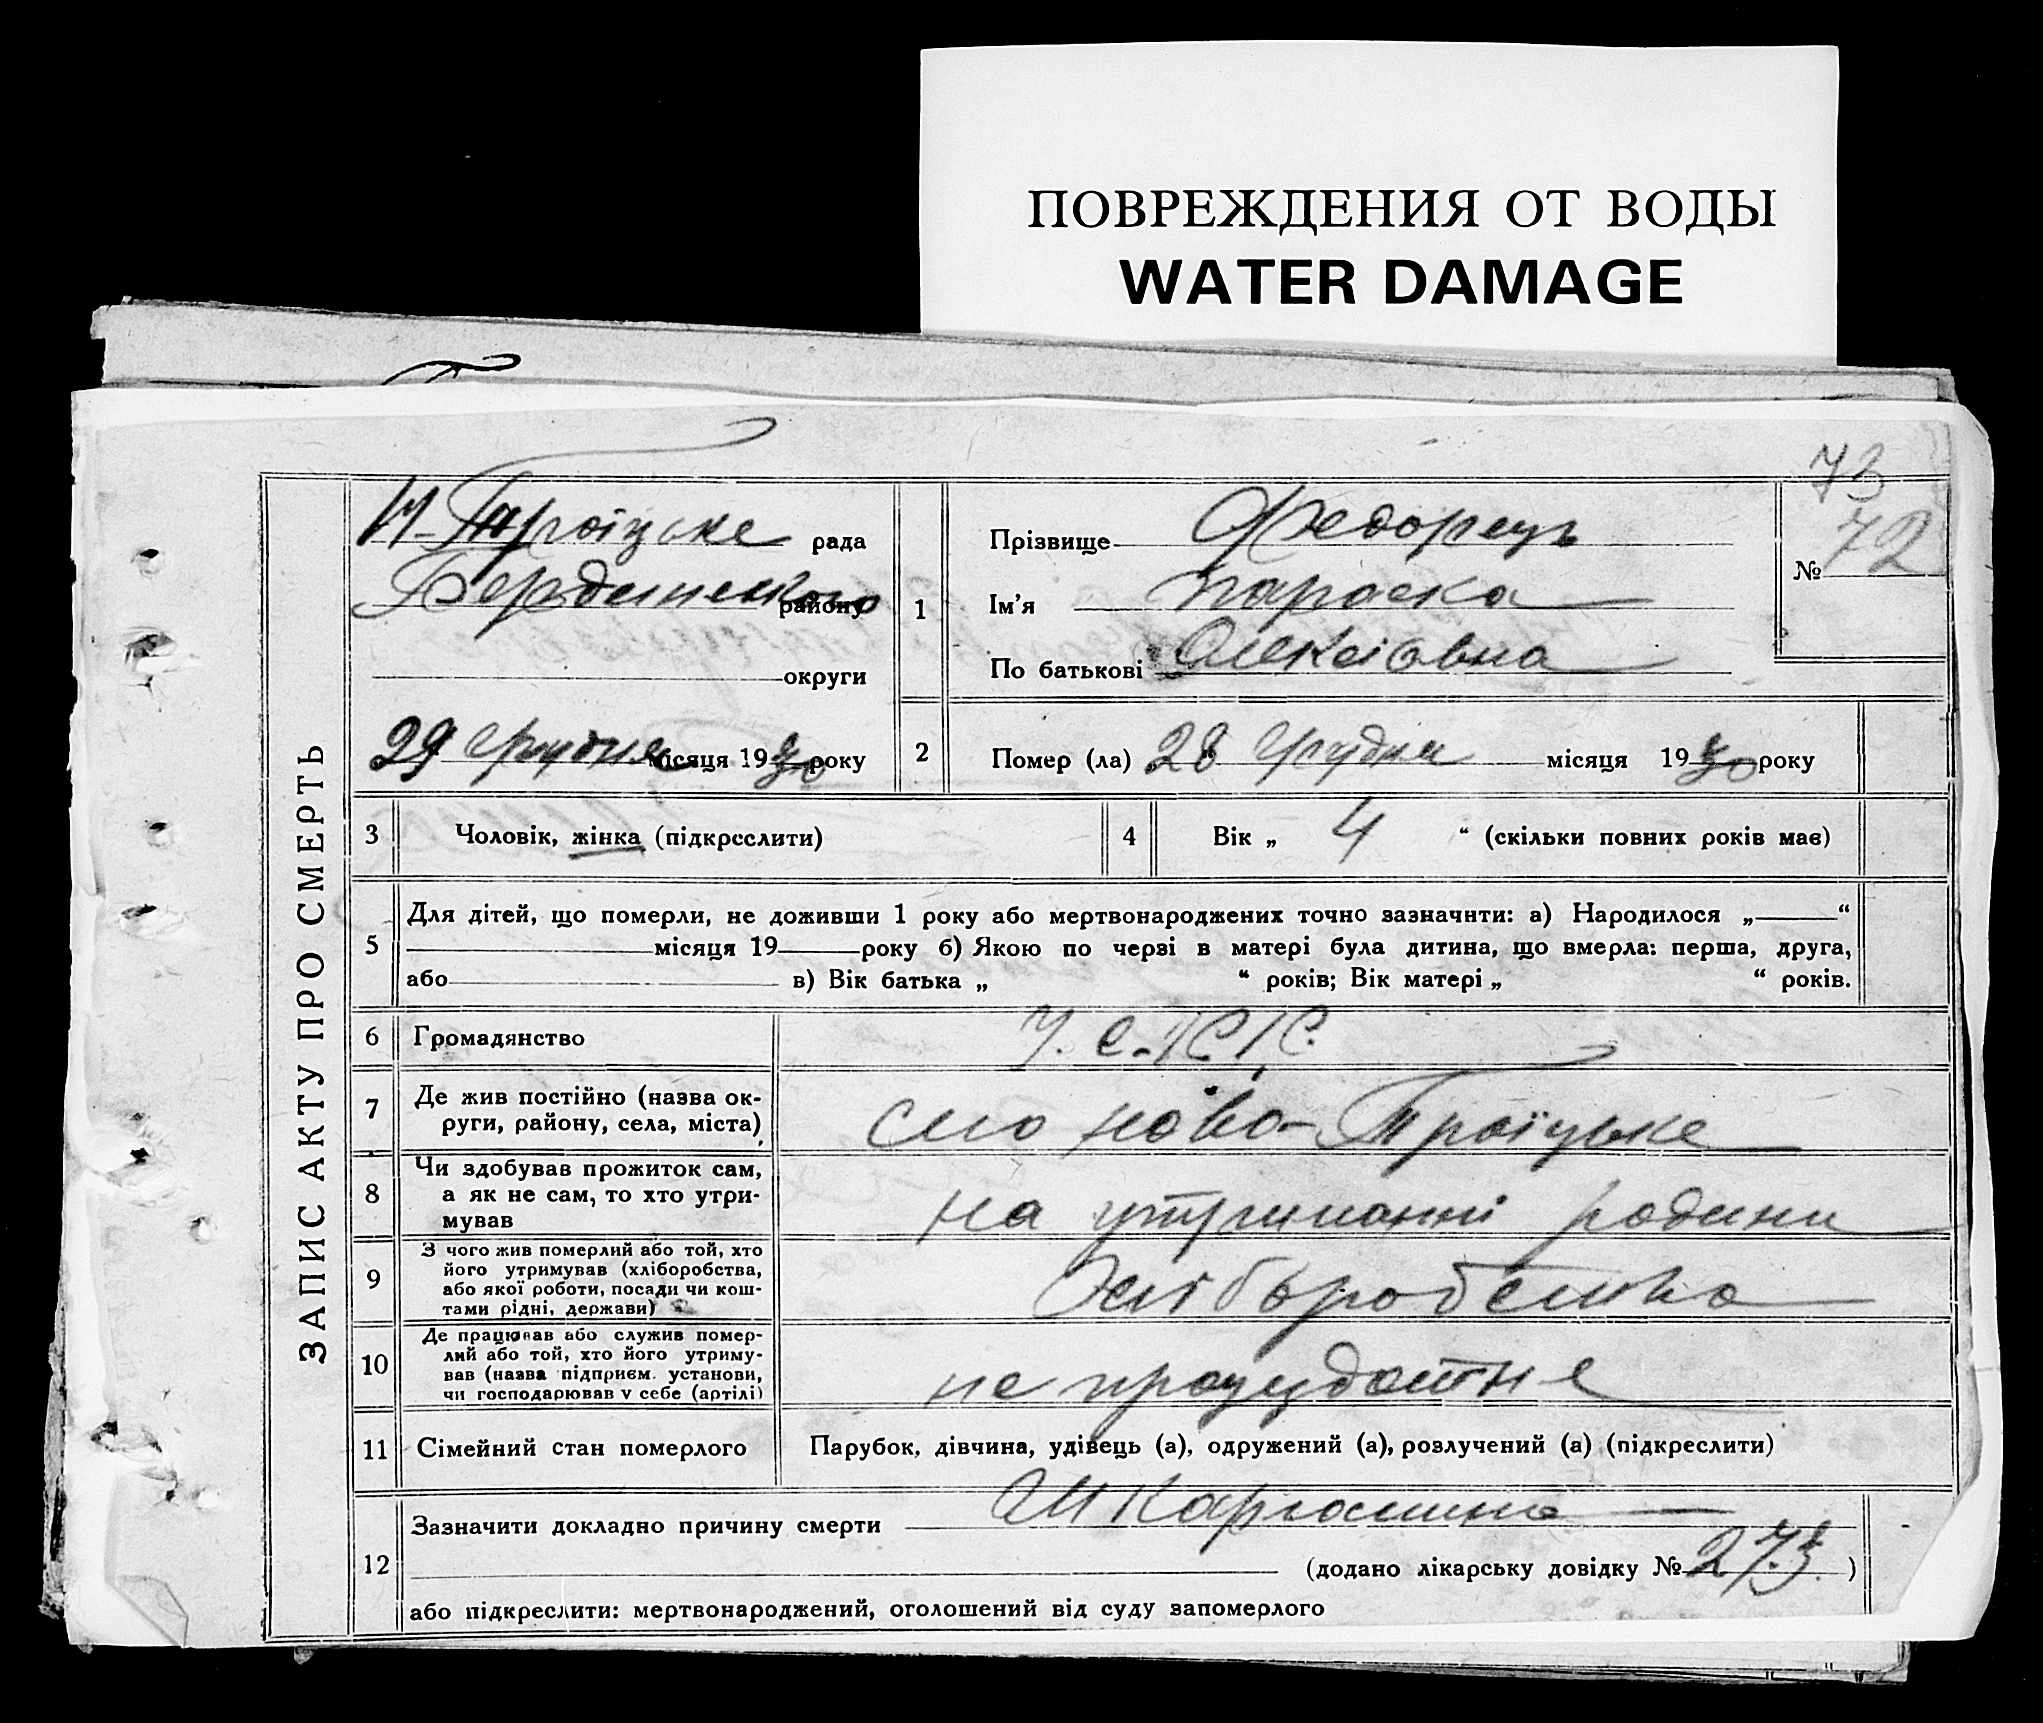 ПОВРЕЖДЕНИЯ ОТ ВОДЫ
WATER DAMAGE
73
72
№
ЗАПИС АКТУ ПРО СМЕРТЬ
Н-Троїцьке рада
району
округи
29 Грудня місяця 1930 року
1
Прізвище Федорець
Ім'я Параска
По батькові Олексіовна
2 Помер (ла) „28 Грудня місяця 1930 року
3 Чоловік, жінка (підкреслити)
4 Вік „ 4 “ (скільки повних років має)
5 Для дітей, що померли, не доживши 1 року або мертвонароджених точно зазначити: а) Народилося „ “
місяця 19 року б) Якою по черзі в матері була дитина, що вмерла: перша, друга,
або в) Вік батька „ “ років; Вік матері „ “ років.
6 Громадянство У.С.Р.Р.
7 Де жив постійно (назва ок-
руги, району, села, міста)
село Ново-Троїцьке
8 Чи здобував прожиток сам,
а як не сам, то хто утри-
мував
на утриманні родини
9 З чого жив померлий або той, хто
його утримував (хліборобства,
або якої роботи, посади чи кош-
тами рідні, держави)
10 Де працював або служив помер-
лий або той, хто його утриму-
вав (назва підприєм. установи,
чи господарював у себе (артілі)
не працездатне
11 Сімейний стан померлого Парубок, дівчина, удівець (а), одружений (а), розлучений (а) (підкреслити)
12 Зазначити докладно причину смерти Шкарлатина
(додано лікарську довідку № 273.)
або підкреслити: мертвонароджений, оголошений від суду запомерлого